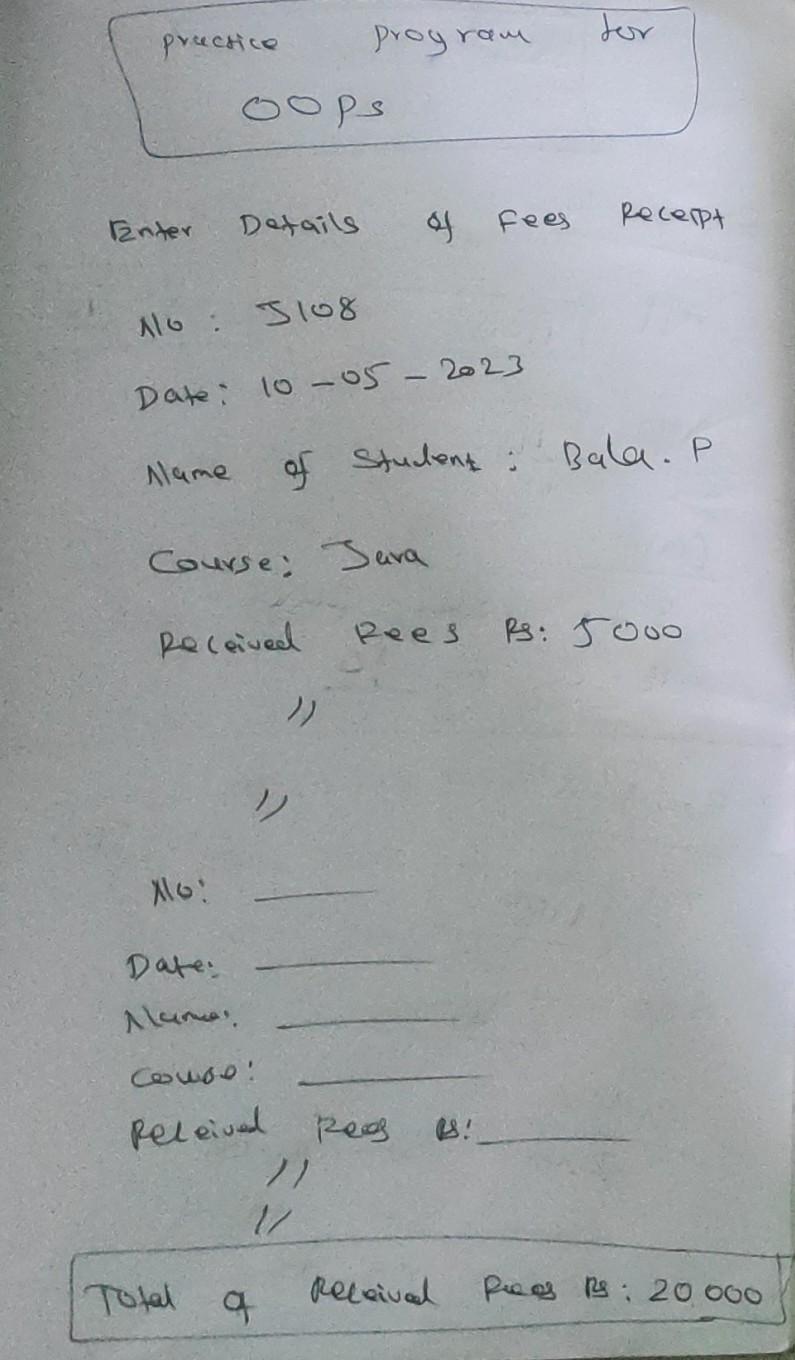 practice program for
OOPs
Enter Details of Fees Receipt
No : J108
Date: 10-05-2023
Name of Student : Bala. P
Course: Java
Received Fees Rs: 5000
"
"
No: ______
Date: ______
Name: ______
Course: ______
Received Fees Rs: ______
"
"
Total of Received Fees Rs: 20000